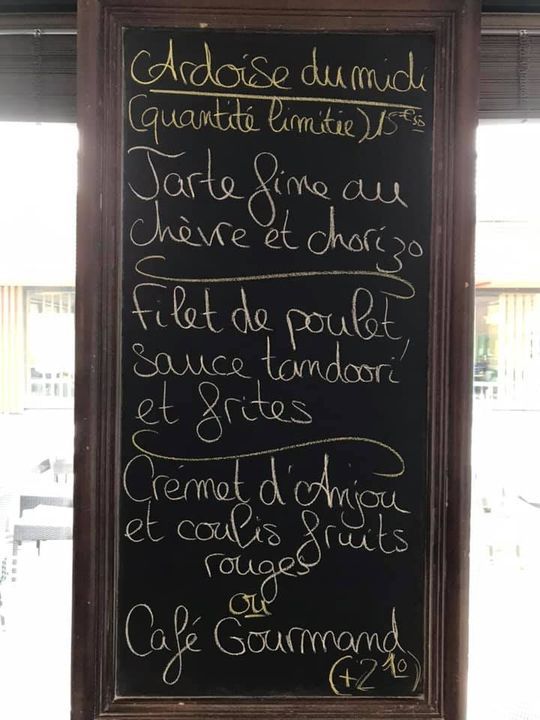 Ardoise du midi
(quantité limitée) 15€50
Tarte fine au
chèvre et chorizo
Filet de poulet,
sauce tandoori
et frites
Crémet d'Anjou
et coulis fruits
rouges
ou
Café Gourmand
(+2€10)